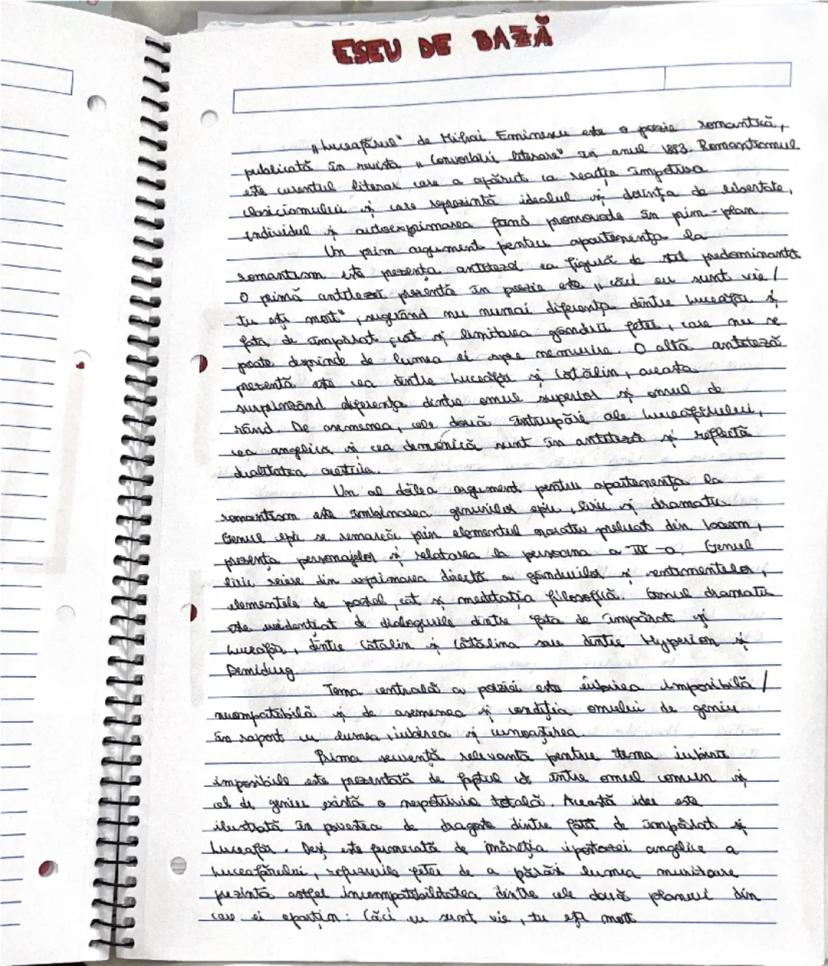 ESEU DE BAZĂ
„Luceafărul" de Mihai Eminescu este o poezie romantică,
publicată în revista „Convorbiri literare" în anul 1883. Romantismul
este curentul literar care a apărut ca reacție împotriva
clasicismului și care reprezintă idealul și dorința de libertate,
individul și autoexprimarea fiind promovate în prim-plan.
Un prim argument pentru apartenența la
romantism este prezența antitezei ca figură de stil predominantă
O primă antiteză prezentă în poezie este „căci eu sunt vie /
tu ești mort", sugerând nu numai diferența dintre Luceafăr și
fata de împărat, cât și limitarea gândirii fetei, care nu se
poate desprinde de lumea ei spre nemurire. O altă antiteză
prezentă este cea dintre Luceafăr și Cătălin, aceasta
surprinzând diferența dintre omul superior și omul de
rând. De asemenea, cele două întrupări ale Luceafărului,
cea angelică și cea demonică, sunt în antiteză și reflectă
dualitatea acestuia.
Un al doilea argument pentru apartenența la
romantism este îmbinarea genurilor epic, liric și dramatic.
Genul epic se remarcă prin elementul narativ preluat din basm,
prezența personajelor și relatarea la persoana a III-a. Genul
liric reiese din exprimarea directă a gândurilor și sentimentelor,
elementele de pastel, cât și meditația filosofică. Genul dramatic
este evidențiat de dialogurile dintre fata de împărat și
Luceafăr, dintre Cătălin și Cătălina sau dintre Hyperion și
Demiurg.
Tema centrală a poeziei este iubirea imposibilă /
incompatibilă și de asemenea și condiția omului de geniu
în raport cu lumea, iubirea și cunoașterea.
Prima secvență relevantă pentru tema iubirii
imposibile este prezentată de faptul că între omul comun și
cel de geniu există o nepotrivire totală. Această idee este
ilustrată în povestea de dragoste dintre fata de împărat și
Luceafăr. Deși este fermecată de măreția ipostazei angelice a
Luceafărului, refuzurile fetei de a părăsi lumea muritoare
prezintă astfel incompatibilitatea dintre cele două planuri din
care ei aparțin: Căci eu sunt vie, tu ești mort